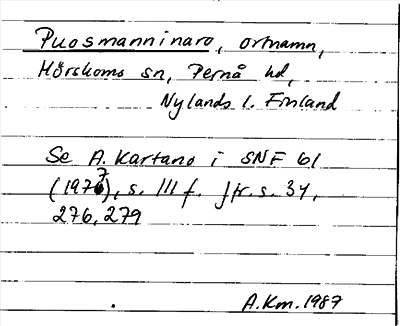 Puosmanninaro, ortnamn,
Mörskoms sn, Pernå hd,
Nylands l. Finland
Se A. Kartano i SNF 61
(1977), s. 111 f. Jfr. s. 34,
276, 279
A.Km. 1987